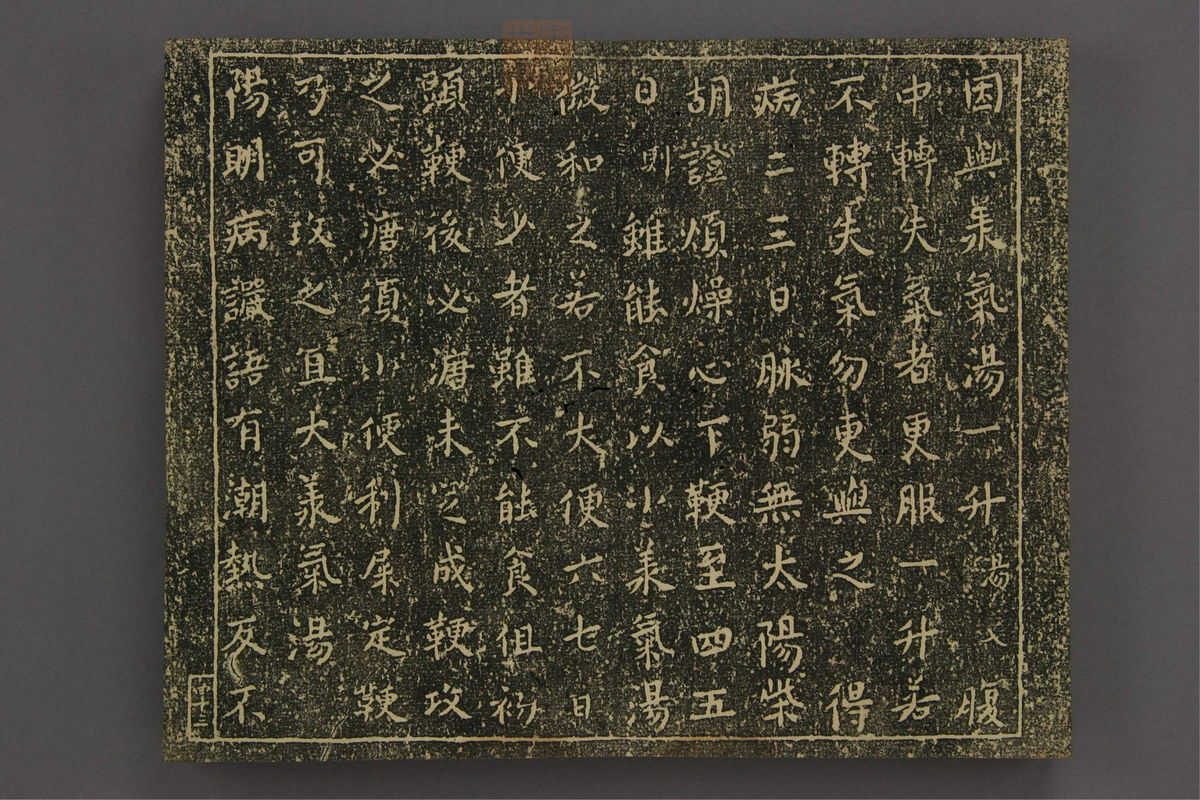 因與承氣湯一升湯入腹
中轉失氣者更服一升若
不轉失氣勿更與之得
病二三日脉弱無太陽柴
胡證煩燥心下鞕至四五
日則雖能食以小承氣湯
微和之若不大便六七日
小便少者雖不能食但初
頭鞕後必溏未定成鞕攻
之必溏須小便利屎定鞕
乃可攻之宜大承氣湯
陽明病讝語有潮熱反不